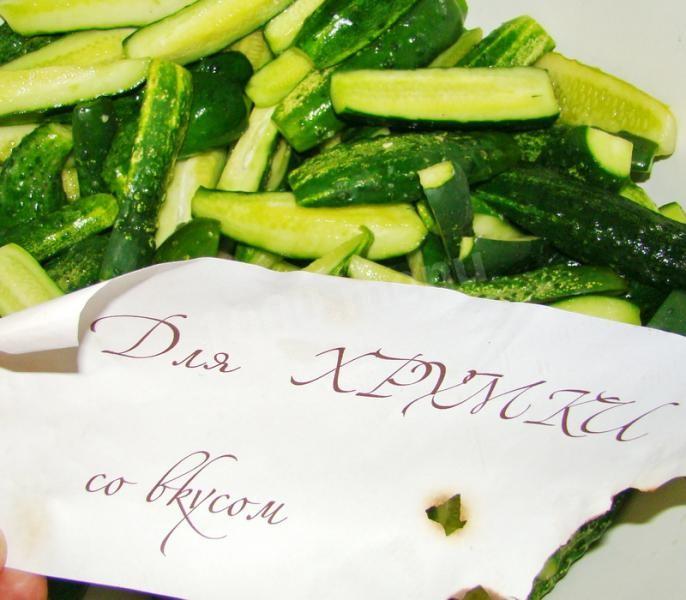 Для ХРУМКИ
со вкусом